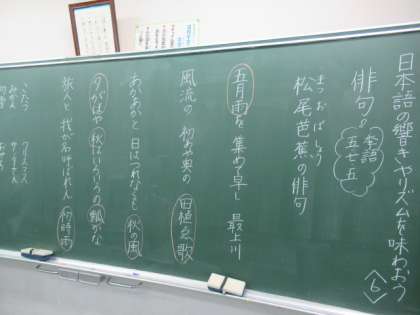 日本語の響きやリズムを味わおう
〈6〉
俳句。
季語
五七五
まつおばしょう
松尾芭蕉の俳句
五月雨を 集めて早し 最上川
風流の 初めや奥の 田植え歌
あかあかと 日はつれなくも 秋の風
夕がほや 秋はいろいろの 瓢かな
旅人と 我が名呼ばれん 初時雨
こたつ
クリスマス